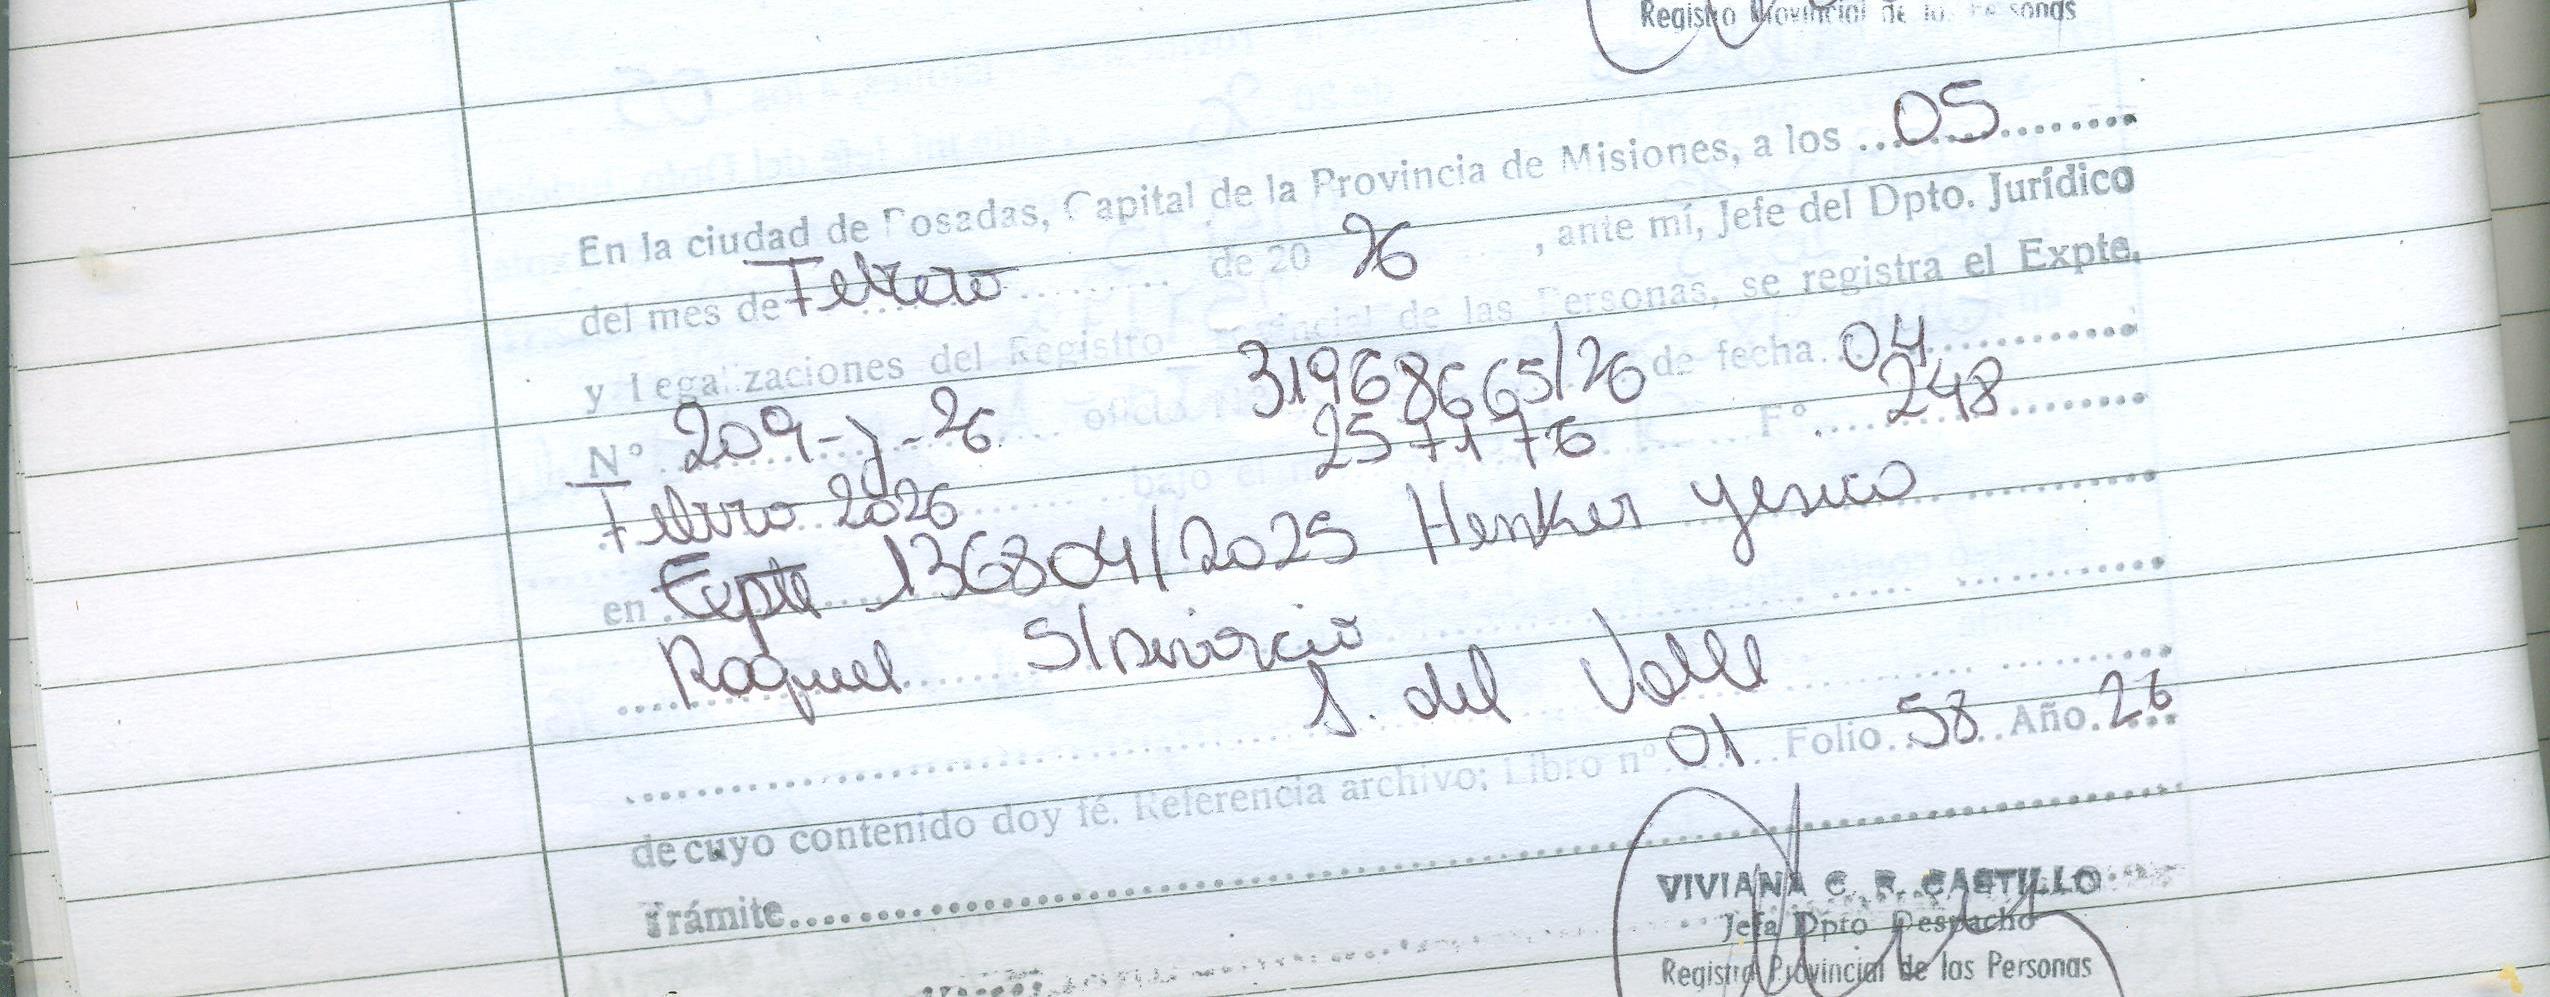 Registro Provincial de las Personas
En la ciudad de Posadas, Capital de la Provincia de Misiones, a los 05
del mes de Febrero de 20 26, ante mí, Jefe del Dpto. Jurídico
y Legalizaciones del Registro Provincial de las Personas, se registra el Expte.
N° 209-J-26 oficio N° 31968665/26 de fecha 04
Febrero 2026 bajo el n° 257176 F° 248
en Expte 136804/2025 Henker Yesica
Raquel S/Divorcio
S. del Valle
de cuyo contenido doy fé. Referencia archivo; Libro n° 01 Folio 58 Año 26
Trámite
VIVIANA C. R. CASTILLO
Jefa Dpto Despacho
Registro Provincial de las Personas